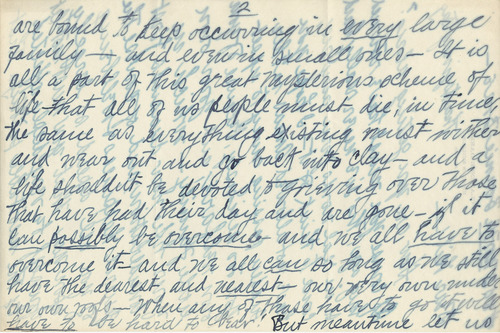 2
are bound to keep occurring in every large
family – and even in small ones – It is
all a part of this great mysterious scheme of
life – that all of us people must die, in time
the same as everything existing must wither
and wear out and go back into clay – and a
life shouldn't be devoted to grieving over those
that have had their day and are gone – if it
can possibly be overcome – and we all have to
overcome it – and we all can so long as we still
have the dearest, and nearest – our very own under
our own roofs – When any of those have to go it will
have to be hard to bear. But meantime let us